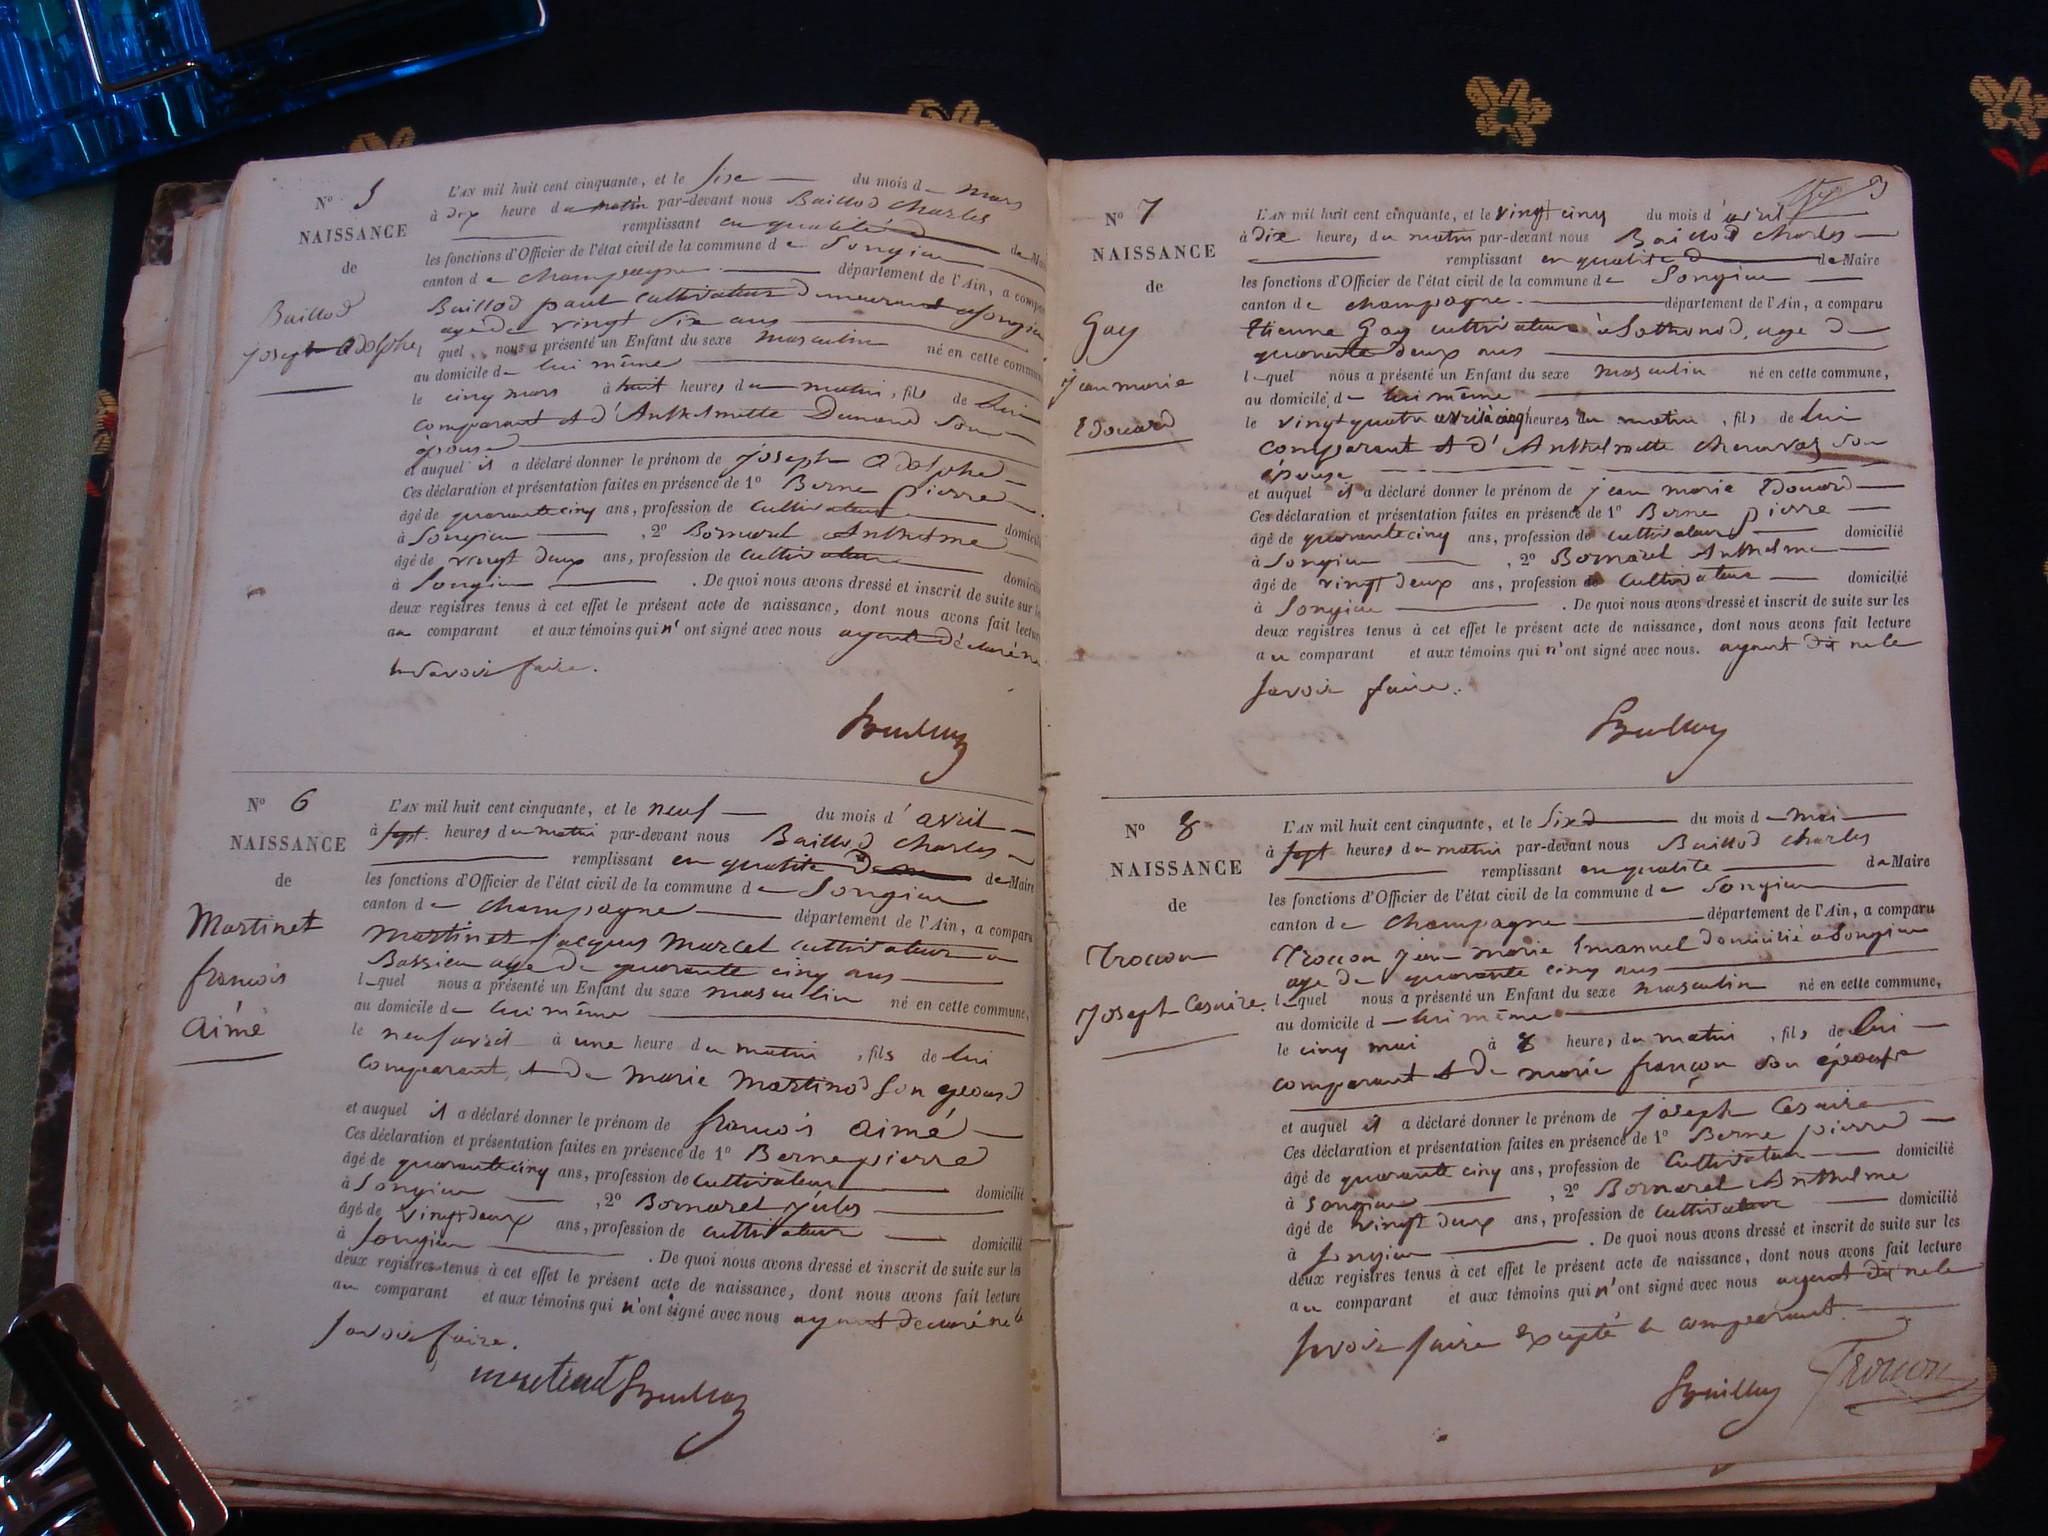 N° 5
NAISSANCE
de
Baillod
joseph adolphe
L'AN mil huit cent cinquante, et le six du mois de mars
à dix heure du matin par-devant nous Baillod Charles
remplissant en qualité de Maire
les fonctions d'Officier de l'état civil de la commune de Songieu
canton de champagne département de l'Ain, a comparu
Baillod paul cultivateur demeurant a Songieu
age de vingt six ans
quel nous a présenté un Enfant du sexe masculin né en cette commune
au domicile de lui même
le cinq mars à huit heures du matin, fils de lui
comparant et d'Anthelmette Dumand son
épouse
et auquel il a déclaré donner le prénom de joseph adolphe
Ces déclaration et présentation faites en présence de 1° Berne pierre
âgé de quarante cinq ans, profession de cultivateur domicilié
à Songieu, 2° Bornarel Anthelme
âgé de vingt deux ans, profession de cultivateur domicilié
à Songieu. De quoi nous avons dressé et inscrit de suite sur les
deux registres tenus à cet effet le présent acte de naissance, dont nous avons fait lecture
au comparant et aux témoins qui n'ont signé avec nous ayant déclaré ne
le savoir faire.
N° 6
NAISSANCE
de
Martinet
francois
aimé
L'AN mil huit cent cinquante, et le neuf du mois d'avril
à sept heures du matin par-devant nous Baillod Charles
remplissant en qualité de Maire
les fonctions d'Officier de l'état civil de la commune de Songieu
canton de champagne département de l'Ain, a comparu
Martinet jacques Marcel cultivateur a
Bassieu age de quarante cinq ans
lequel nous a présenté un Enfant du sexe masculin né en cette commune,
au domicile de lui même
le neuf avril à une heure du matin, fils de lui
comparant et de marie Martinod son epouse
et auquel il a déclaré donner le prénom de francois aimé
Ces déclaration et présentation faites en présence de 1° Berne pierre
âgé de quarante cinq ans, profession de cultivateur domicilié
à Songieu, 2° Bornarel jules
âgé de vingt deux ans, profession de cultivateur
à Songieu domicilié. De quoi nous avons dressé et inscrit de suite sur les
deux registres tenus à cet effet le présent acte de naissance, dont nous avons fait lecture
au comparant et aux témoins qui n'ont signé avec nous ayant declaré ne le
savoir faire.
N° 7
NAISSANCE
de
Gay
jean marie
Edouard
L'AN mil huit cent cinquante, et le vingt cinq du mois d'avril
à dix heures du matin par-devant nous Baillod Charles
remplissant en qualité de Maire
les fonctions d'Officier de l'état civil de la commune de Songieu
canton de champagne département de l'Ain, a comparu
Etienne Gay cultivateur à Sothonod, age de
quarante deux ans
lequel nous a présenté un Enfant du sexe masculin né en cette commune,
au domicile de lui même
le vingt quatre avril à cinq heures du matin, fils de lui
comparant et d'Anthelmette son
épouse
et auquel il a déclaré donner le prénom de jean marie Edouard
Ces déclaration et présentation faites en présence de 1° Berne pierre
âgé de quarante cinq ans, profession de cultivateur domicilié
à Songieu, 2° Bornarel Anthelme
âgé de vingt deux ans, profession de cultivateur domicilié
à Songieu. De quoi nous avons dressé et inscrit de suite sur les
deux registres tenus à cet effet le présent acte de naissance, dont nous avons fait lecture
au comparant et aux témoins qui n'ont signé avec nous. ayant dit ne le
savoir faire.
N° 8
NAISSANCE
de
Troccon
joseph Cesaire
L'AN mil huit cent cinquante, et le six du mois de mai
à sept heures du matin par-devant nous Baillod Charles
remplissant en qualité de Maire
les fonctions d'Officier de l'état civil de la commune de Songieu
canton de champagne département de l'Ain, a comparu
Troccon jean marie Emanuel domicilié a Songieu
age de quarante cinq ans
lequel nous a présenté un Enfant du sexe masculin né en cette commune,
au domicile de lui même
le cinq mai à 8 heures du matin, fils de lui
comparant et de marie françon son épouse
et auquel il a déclaré donner le prénom de joseph Cesaire
Ces déclaration et présentation faites en présence de 1° Berne pierre
âgé de quarante cinq ans, profession de cultivateur domicilié
à Songieu, 2° Bornarel Anthelme
âgé de vingt deux ans, profession de cultivateur domicilié
à Songieu. De quoi nous avons dressé et inscrit de suite sur les
deux registres tenus à cet effet le présent acte de naissance, dont nous avons fait lecture
au comparant et aux témoins qui n'ont signé avec nous ayant dit ne le
savoir faire excepté le comparant.
Troccon